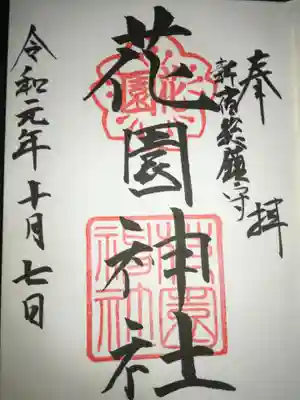 奉拝
新宿総鎮守
花園神社
令和元年十月七日
花園
花園神社